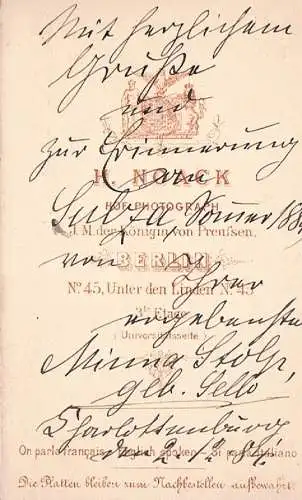 Mit herzlichem
Gruße
und
zur Erinnerung
H. NOACK
an
HOF-PHOTOGRAPH
Sulza Sommer
I. M. der Königin von Preußen,
von
BERLIN
Ihrer
No. 45, Unter den Linden No. 45
3te Etage
ergebenste
(Universitätsseite)
Minna Stolp,
geb. Sello
Charlottenburg
On parle français - English spoken - Si parla italiano
den 2/12
Die Platten bleiben zum Nachbestellen aufbewahrt.